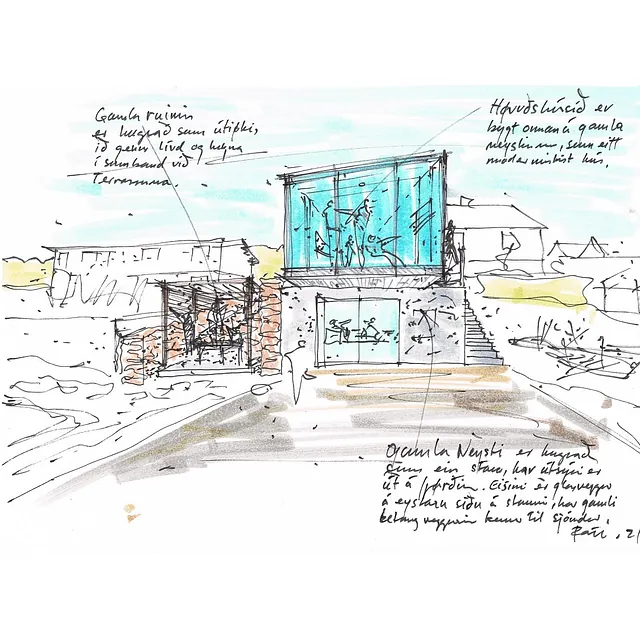 Gamla ruinin
er hugsað sum útihki,
ið gevur lívd og hugna
í samband við
Terrassuna.
Høvuðshúsið er
bygt omman á gamla
neystinum, sum eitt
modernistist hús.
Gamla Neysti er hugsað
sum ein stova, har útsýni er
út á fjørðin. Eisini er glasveggur
á eystaru síðu á stovuni, har gamli
betong veggurin kemur til sjóndar.